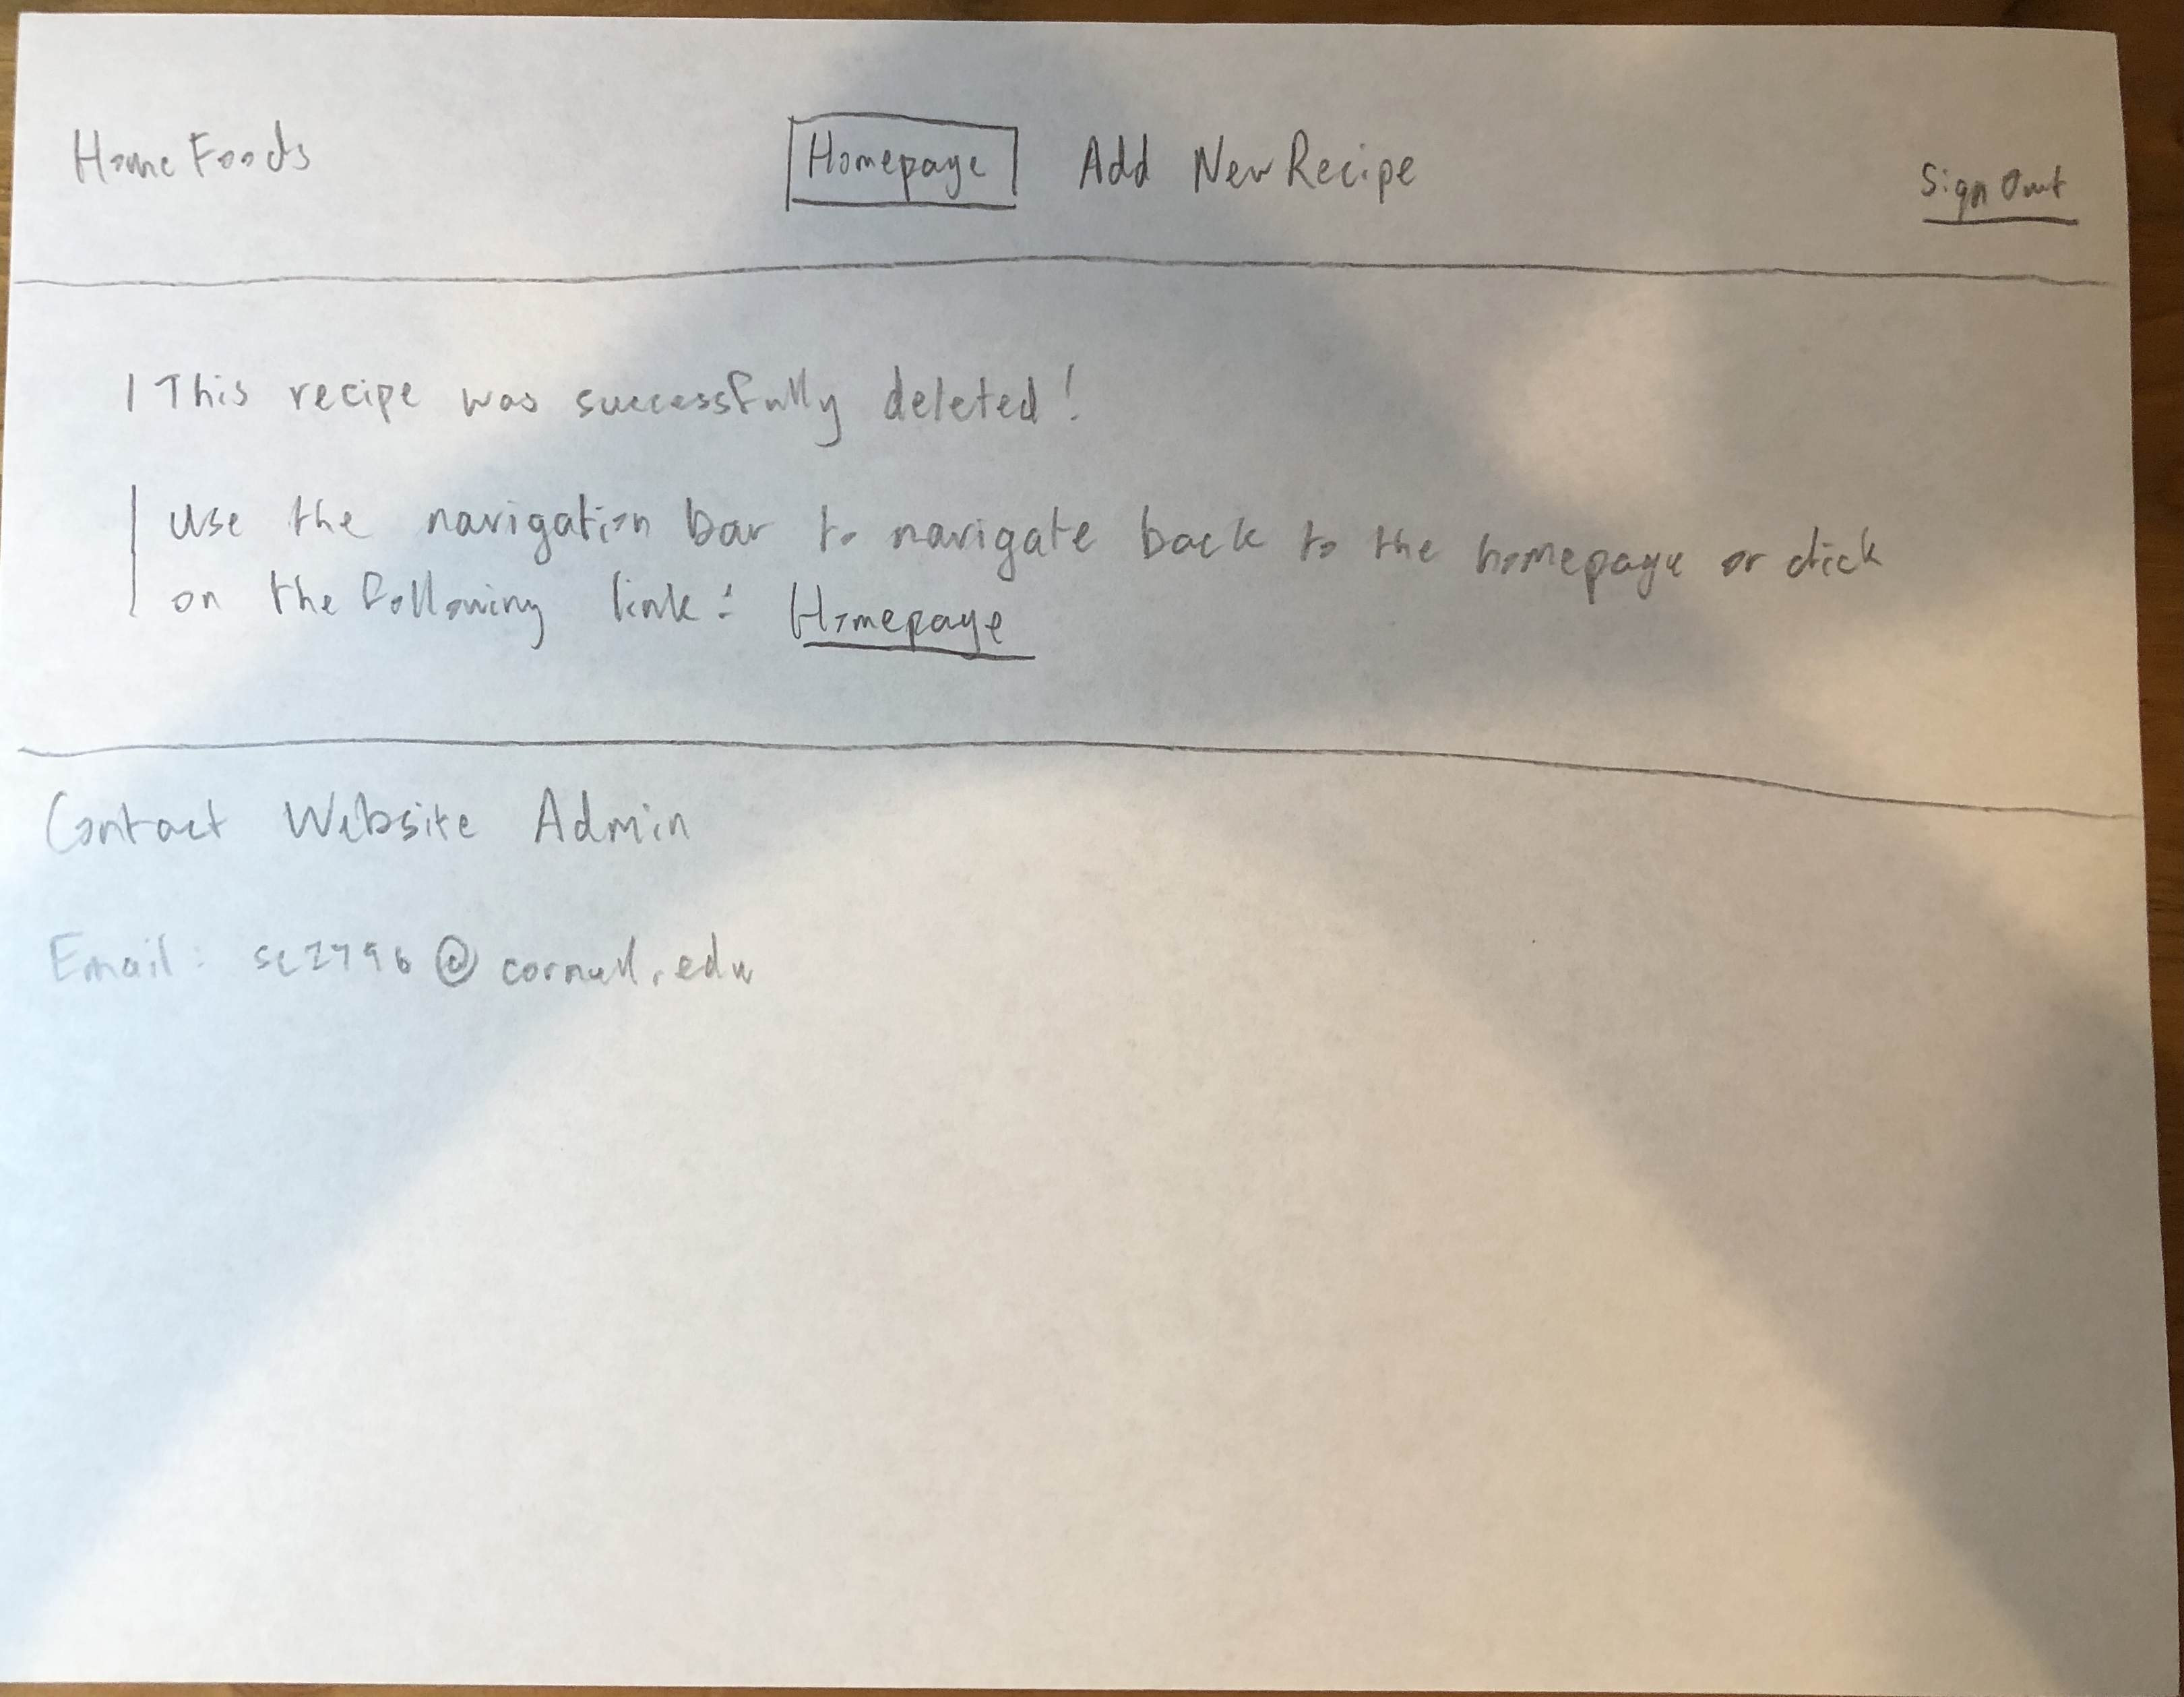 Home Foods Homepage Add New Recipe Sign Out
This recipe was successfully deleted!
Use the navigation bar to navigate back to the homepage or click
on the following link: Homepage
Contact Website Admin
Email: sc2796@cornell.edu